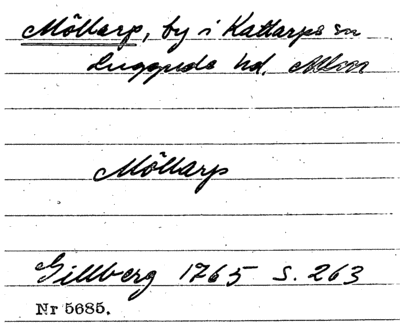 Möllarp, by i Kattarps sn
Luggude hd. Mlm
Möllarp
Gillberg 1765 s. 263
Nr 5685.